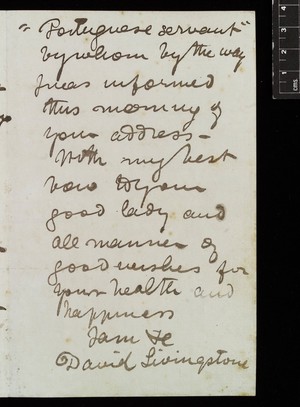 "Portuguese servant"
by whom by the way
I was informed
this morning of
your address -
With my best
bow to your
good lady and
all manner of
good wishes for
your health and
happiness
I am &c
David Livingstone